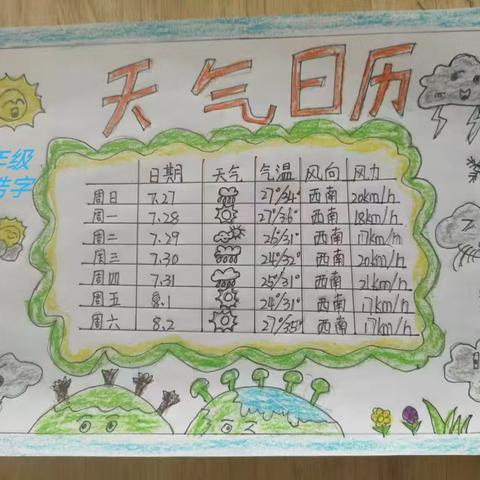 天气日历
年级
皓字
日期 天气 气温 风向 风力
周日 7.27 27°/34° 西南 20km/h
周一 7.28 27°/36° 西南 18km/h
周二 7.29 25/31° 西南 17km/h
周三 7.30 24°/32° 西南 20km/h
周四 7.31 25°/31° 西南 21km/h
周五 8.1 24°/31° 西南 17km/h
周六 8.2 27°/35° 西南 17km/h